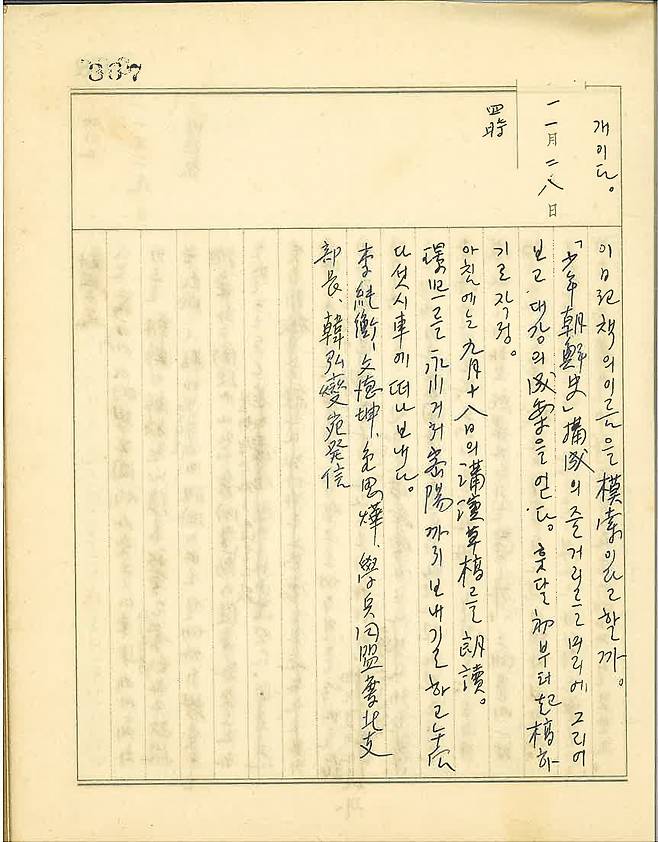 개이다。
一一月二八日
四時
이 日記책의 이름을 模索이라고 할까。
「少年朝鮮史」構成의 줄거리를 머리에 그리어
보고 대강의 成案을 얻다。훗달 初부터 起稿하
기로 작정。
아침에는 九月十八日의 講演草稿를 朗讀。
를 永川거쳐 密陽까지 보내기로 하고
다섯시車에 떠나보내다。
李純衡、文德坤、思燁、學兵同盟慶北支
部長、韓弘燮宛発信